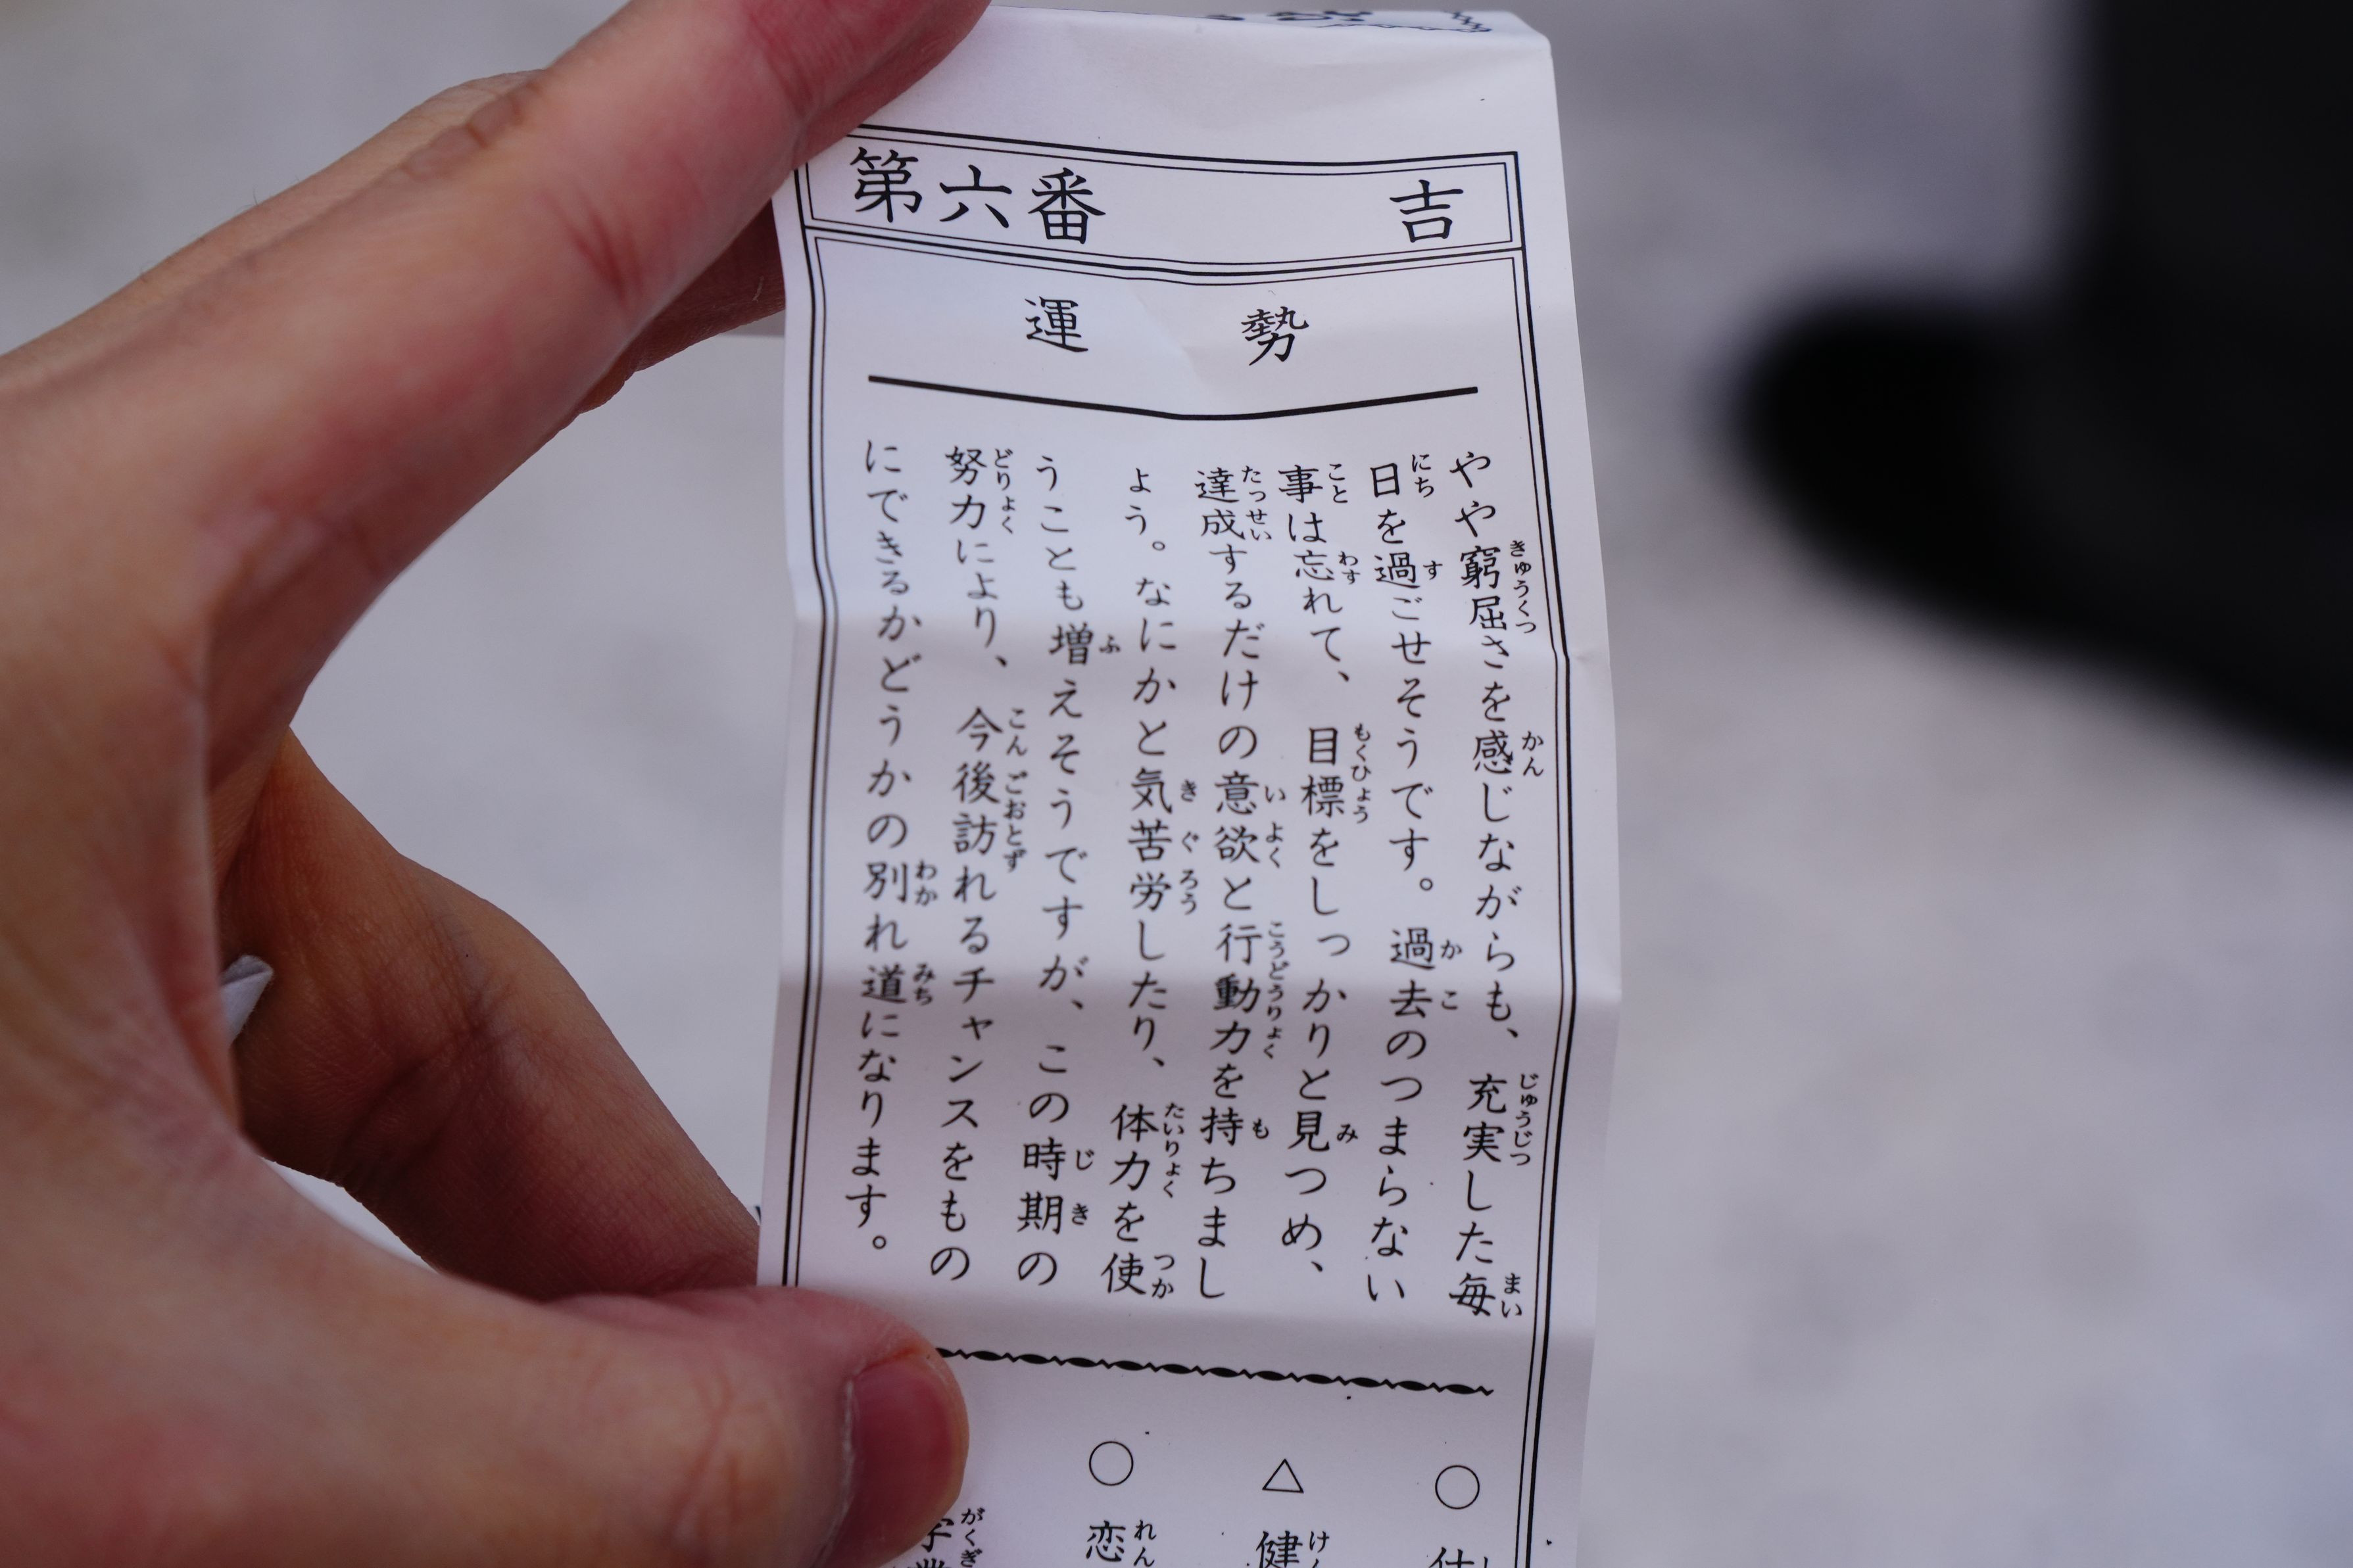 第六番 吉
運勢
やや窮屈さを感じながらも、充実した毎
日を過ごせそうです。過去のつまらない
事は忘れて、目標をしっかりと見つめ、
達成するだけの意欲と行動力を持ちまし
ょう。なにかと気苦労したり、体力を使
うことも増えそうですが、この時期の
努力により、今後訪れるチャンスをもの
にできるかどうかの別れ道になります。
○
△ 健
○ 恋